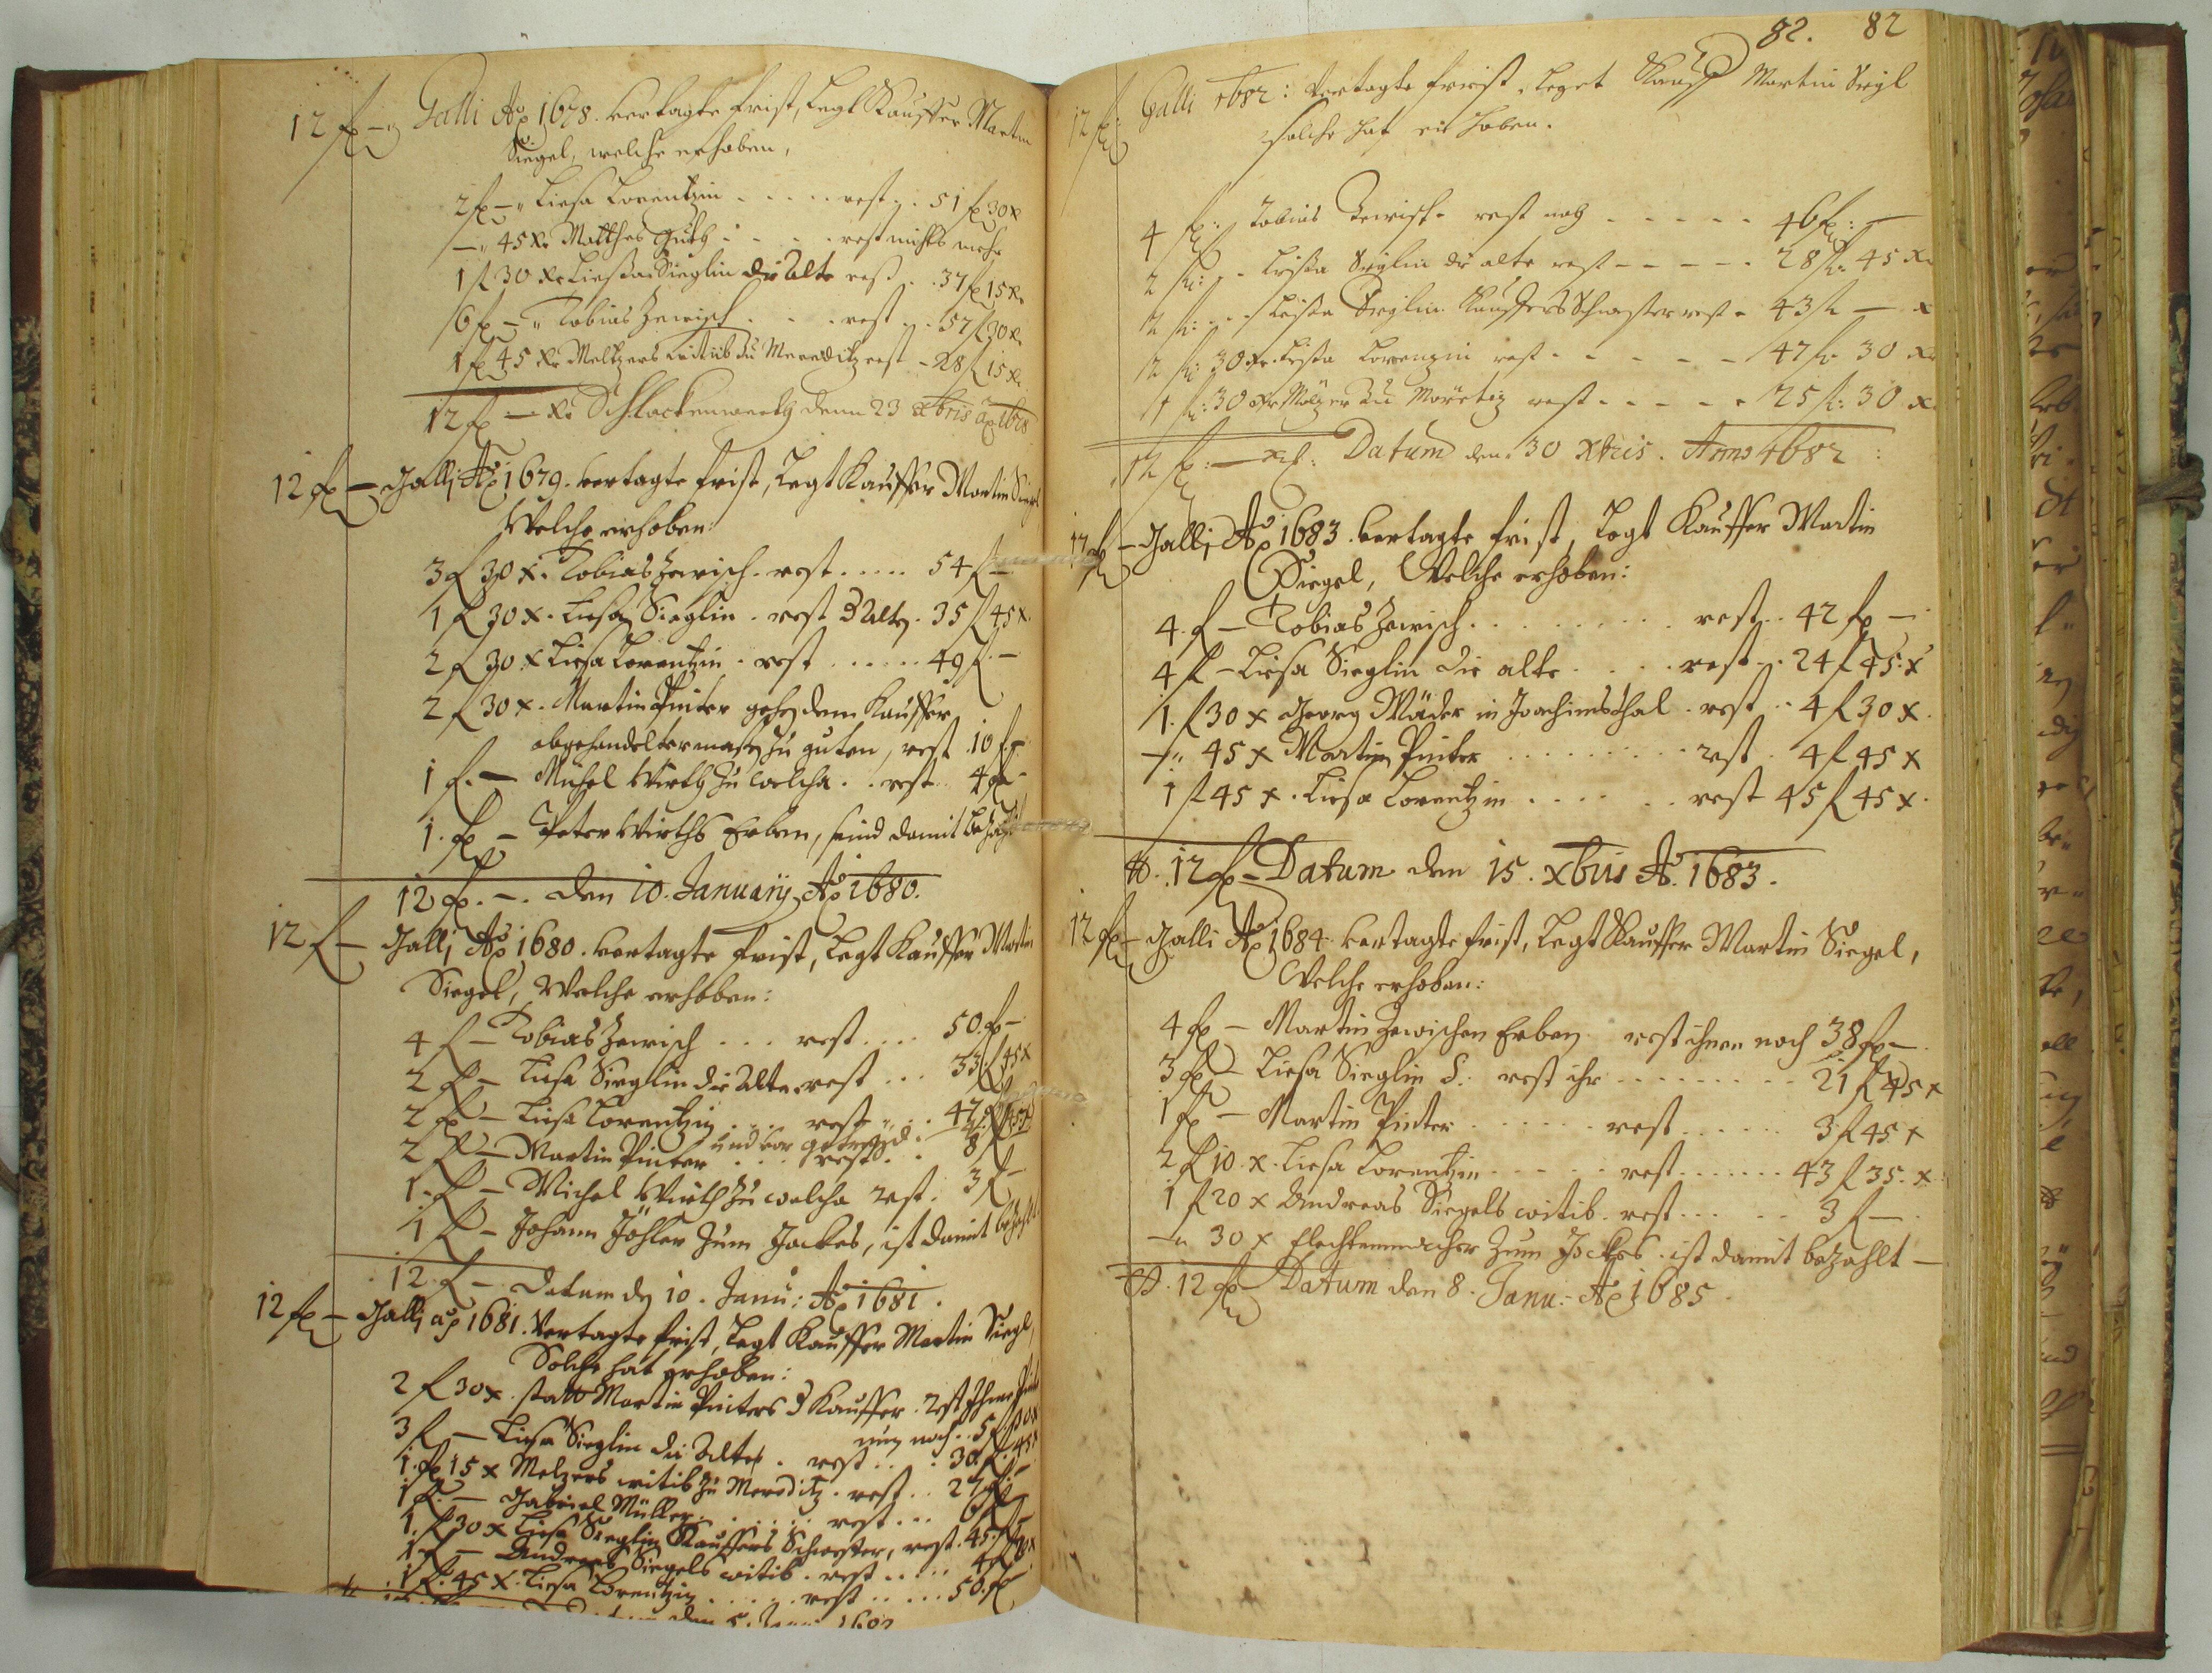 12 fl – Galli Ao 1678. vertagte frist, Legt Kauffer Martin
Siegel, welche erhoben,
2 fl – " Liesa Lorentzin . . . . . rest . . 51 fl 30 x
– " 45 Xr Matthes . . . . rest nichts mehr
1 fl 30 Xr Liesa Sieglin die Alte rest . . 37 fl 15 Xr
6 fl – " Tobias Zewisch . . . rest . . 57 fl 30 x
1 fl 45 Xr Meltzers wittib zu Mereditz rest – 28 fl 15 Xr
12 fl – Xr Schlackenwerth denn 23 Xbris Ao 1678
12 fl – Galli Ao 1679. vertagte frist, Legt Kauffer Martin Siegel
Welche erhoben:
3 fl 30 x. Tobias Zewisch. rest . . . . . 54 fl –
1 fl 30 x. Liesa Sieglin. rest d Alte. 35 fl 45 x.
2 fl 30 x Liesa Lorentzin. rest . . . . . . 49 fl –
2 fl 30 x. Martin Pinter gehe dem Kauffer
abgehandelter masse zu guten, rest 10 fl
1 fl. – Michel Wirth zu welcha . . rest . . 4 fl –
1. fl – Peter Wirths Erben, seind damit bezahlt
12 fl. – . den 10. January Ao 1680.
12 fl – Galli Ao 1680. vertagte frist, Legt Kauffer Martin
Siegel, Welche erhoben:
4 fl – Tobias Zewisch . . . rest . . . . 50. fl –
2 fl – Liesa Sieglin die Alte rest . . . 33 fl 45 x
2 fl – Liesa Lorentzin . . . rest . . . 47. fl
2 fl – Martin Pinter . . . rest . . 8 fl
1. fl – Michel Wirth zu welcha rest. 3 fl –
1 fl – Johann Föhler zum Jockes, ist damit bezahlt
12 fl – Datum den 10. Janu: Ao 1681.
12 fl – Galli Ao 1681. Vertagte frist, Legt Kauffer Martin Siegl,
Solche hat erhoben:
2 fl 30 x. statt Martin Pinters d Kauffer. rest Ihme
noch . . 5 fl 30 x
3 fl – Liesa Sieglin die Alte . rest . . . 30 fl 45 x
1. fl 15 x Melzers witib zu Mereditz. rest . . 27 fl –
1 fl. – Gabriel Müller . . . . . . rest . . . 6 fl
1. fl 30 x Liesa Sieglin Kauffers Schwester, rest. 45. fl
1 fl – Andreas Siegels witib. rest . . . . . 4 fl 20 x
1 fl. 45 x. Liesa Lorentzin . . . . . rest . . . . . 50. fl
82. 82
12 fl: Galli 1682: Vertagte frist, Leget Kauffer Martin Siegl
solche hat er hoben.
4 fl: Tobias Zewisch rest noch . . . . . 46 fl: –
2 fl: – Lissa Sieglin die alte rest – – – – . 28 fl: 45 Xr
2 fl: – Lissa Sieglin Kauffers Schwester rest – 43 fl – x
2 fl: 30 Xr Lissa Lorenzin rest – – – – – 47 fl: 30 Xr
1 fl: 30 Xr Mölzer zu Möretiz rest – – – – . 25 fl: 30 x.
12 fl: – Xr: Datum den 30 Xbris. Anno 1682 :
12 fl – Galli Ao 1683. vertagte frist, Legt Kauffer Martin
Siegel, Welche erhoben:
4. fl – Tobias Zewisch . . . . . . . . . rest . . 42 fl –
4 fl – Liesa Sieglin die alte . . . . rest . . 24 fl 45. x
1. fl 30 x Georg Mäder in Joachimsthal . rest . . 4 fl 30 x.
– " 45 x Martin Pinter . . . . . . . . . rest . 4 fl 45 x
1 fl 45 x. Liesa Lorentzin . . . . . . rest 45 fl 45 x.
12 fl – Datum den 15. xbris Ao. 1683.
12 fl – Galli Ao 1684. vertagte frist, Legt Kauffer Martin Siegel,
Welche erhoben:
4 fl – Martin Zewischen Erben rest ihnen noch 38 fl –
3 fl – Liesa Sieglin d: rest ihr . . . . . . . . . 21 fl 45 x
1 fl – Martin Pinter . . . . . . rest . . . . . . 3 fl 45 x
2 fl 10. x. Liesa Lorentzin . . . . . rest . . . . . . 43 fl 35. x
1 fl 20 x Andreas Siegels witib. rest . . . . . 3 fl –
– " 30 x flechtenmacher zum Jockes. ist damit bezahlt –
12 fl – Datum den 8. Janu: Ao 1685.